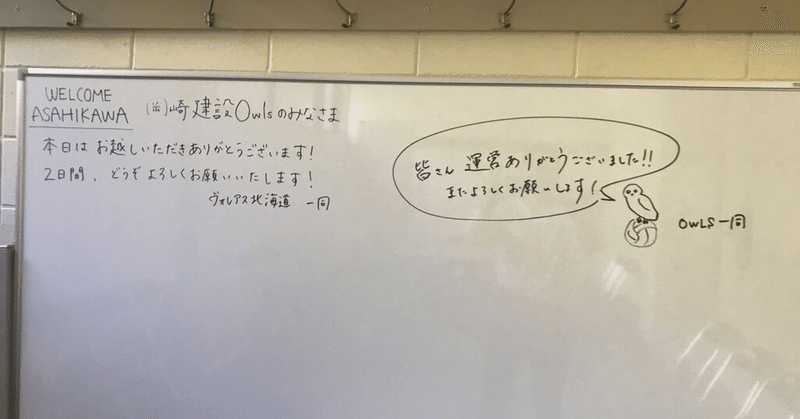 WELCOME
ASAHIKAWA
崎建設Owlsのみなさま
本日は お越しいただきありがとうございます!
2日間、どうぞよろしくお願いいたします!
ヴォレアス北海道 一同
皆さん 運営ありがとうございました!!
またよろしくお願いします!
OWLS一同